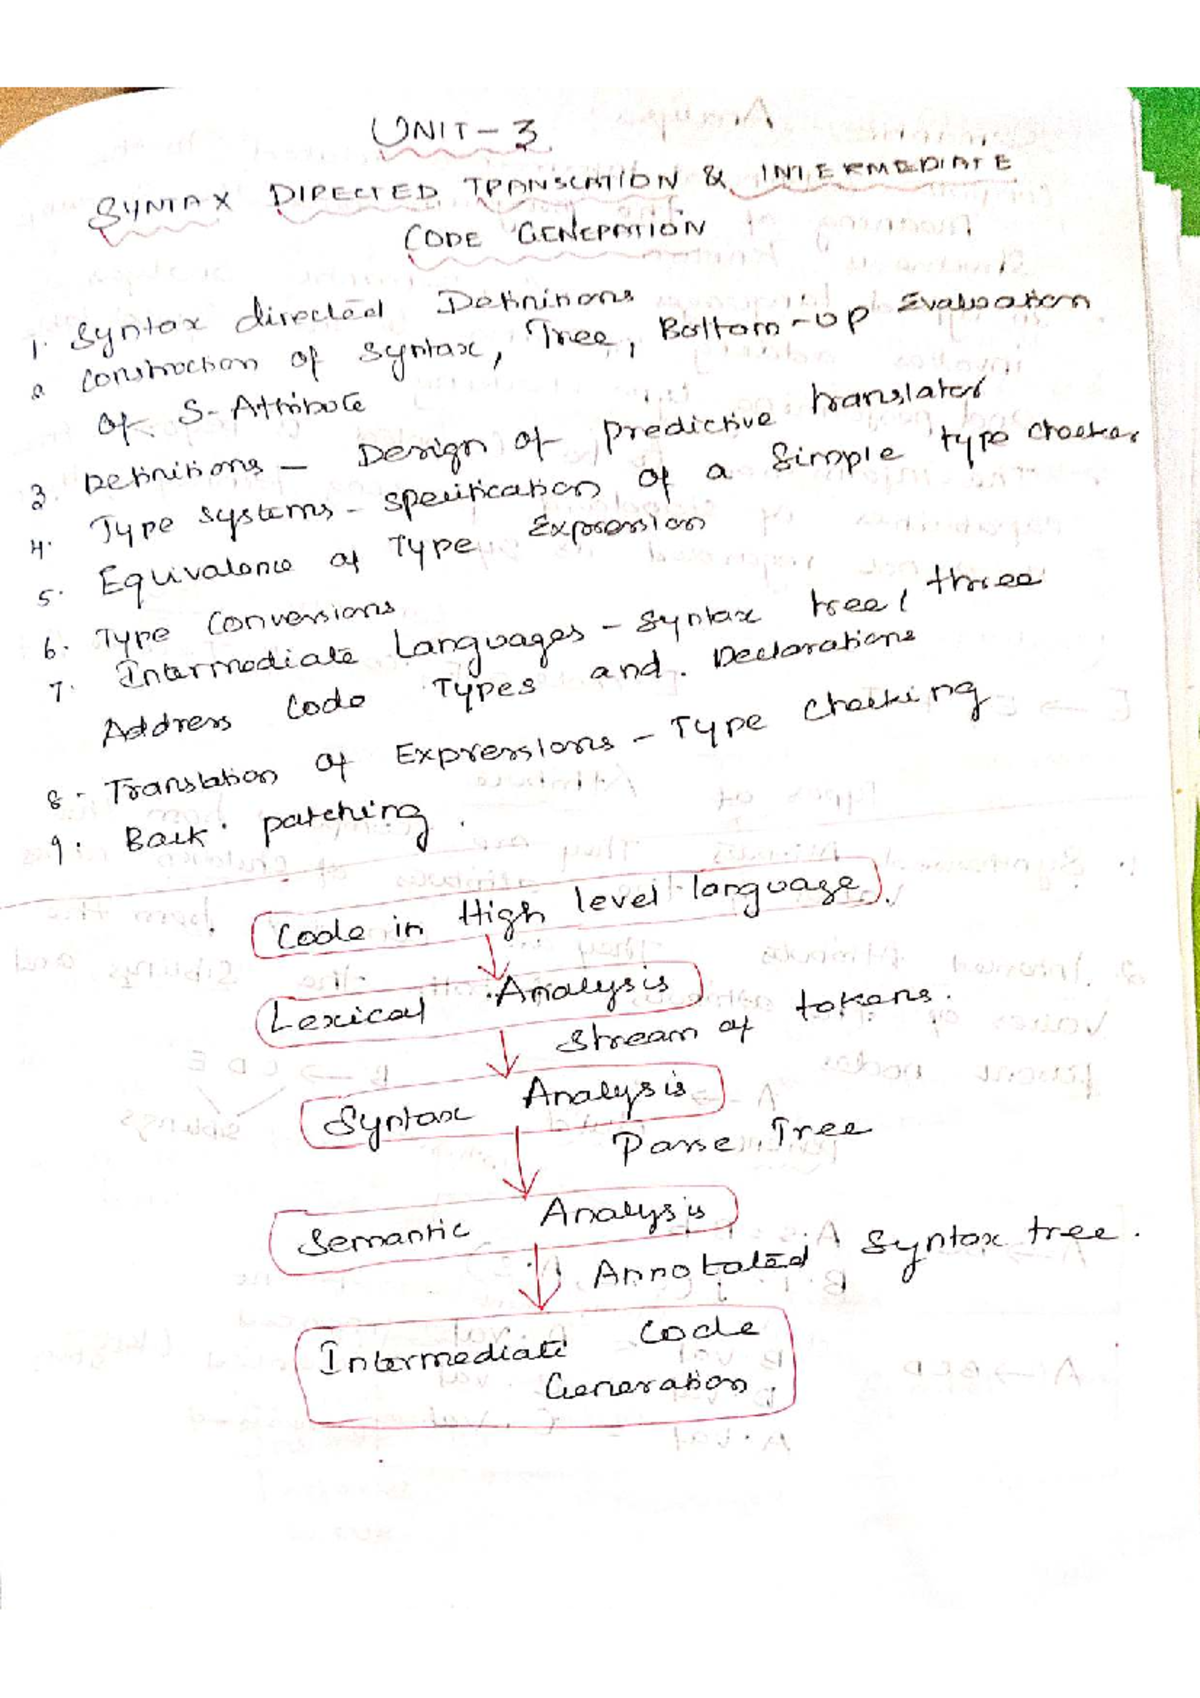 UNIT-3
SYNTAX DIRECTED TRANSLATION & INTERMEDIATE
CODE GENERATION
1. Syntax directed Definitions
2. Construction of Syntax, Tree, Bottom-up Evaluation
of S-Attribute
3. Definitions - Design of predictive translator
4. Type systems - specification of a simple type checker
5. Equivalence of Type Expression
6. Type Conversions
7. Intermediate Languages - Syntax tree, three
Address Code Types and Declarations
8. Translation of Expressions - Type checking
9. Back patching.
Code in High level language.
Lexical Analysis
Stream of tokens.
Syntax Analysis
Parse Tree
Semantic Analysis
Annotated Syntax tree.
Intermediate Code
Generation.